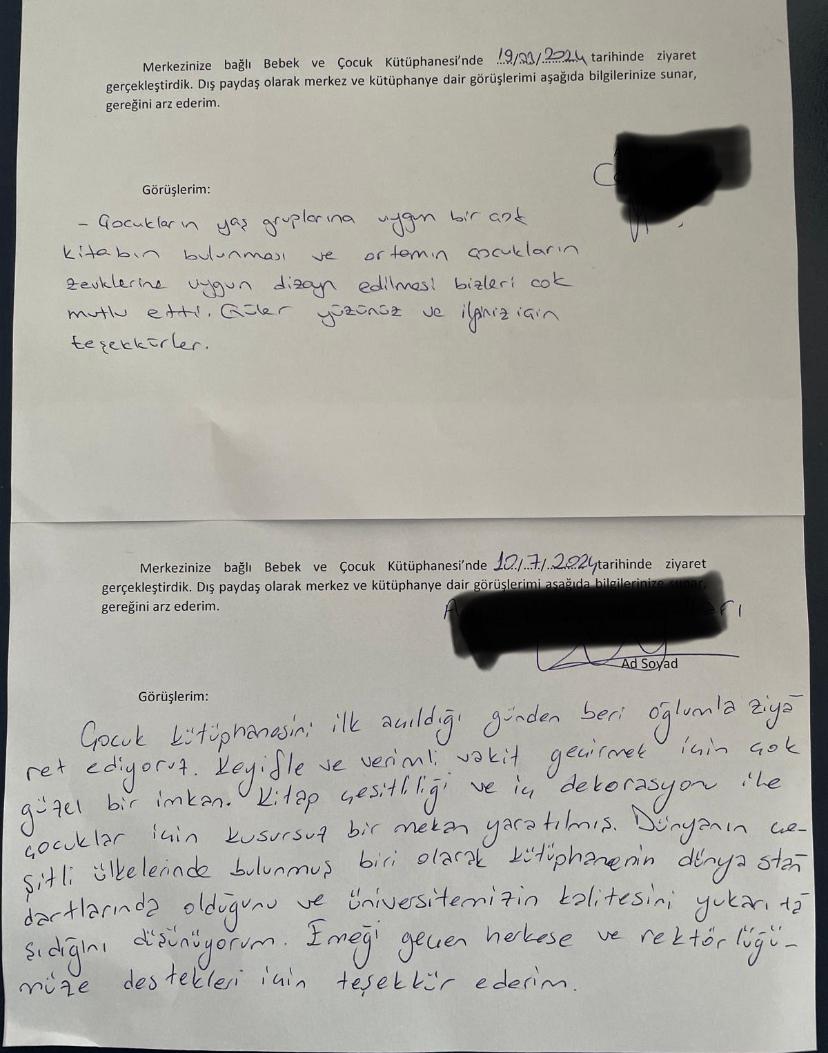 Merkezinize bağlı Bebek ve Çocuk Kütüphanesi'nde tarihinde ziyaret
gerçekleştirdik. Dış paydaş olarak merkez ve kütüphanye dair görüşlerimi aşağıda bilgilerinize sunar,
gereğini arz ederim.
Görüşlerim:
- Çocukların yaş gruplarına uygun bir çok
kitabın bulunması ve ortamın çocukların
zevklerine uygun dizayn edilmesi bizleri çok
mutlu etti. Güler yüzünüz ve ilginiz için
teşekkürler.
Merkezinize bağlı Bebek ve Çocuk Kütüphanesi'nde 10/7/2024 tarihinde ziyaret
gerçekleştirdik. Dış paydaş olarak merkez ve kütüphanye dair görüşlerimi aşağıda bilgilerinize sunar,
gereğini arz ederim.
Ad Soyad
Görüşlerim:
Çocuk kütüphanesini ilk açıldığı günden beri oğlumla ziya
ret ediyoruz. Keyifle ve verimli vakit geçirmek için çok
güzel bir imkan. Kitap çeşitliliği ve iç dekorasyon ile
çocuklar için kusursuz bir mekan yaratılmış. Dünyanın çe-
şitli ülkelerinde bulunmuş biri olarak kütüphanenin dünya stan
dartlarında olduğunu ve üniversitemizin kalitesini yukarı ta
şıdığını düşünüyorum. Emeği geçen herkese ve rektörlüğü-
müze destekleri için teşekkür ederim.